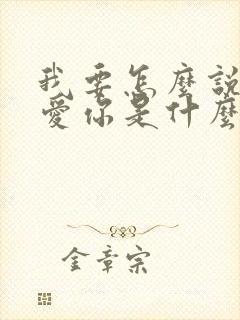 我要怎麼說
愛你是什麼
金章宗